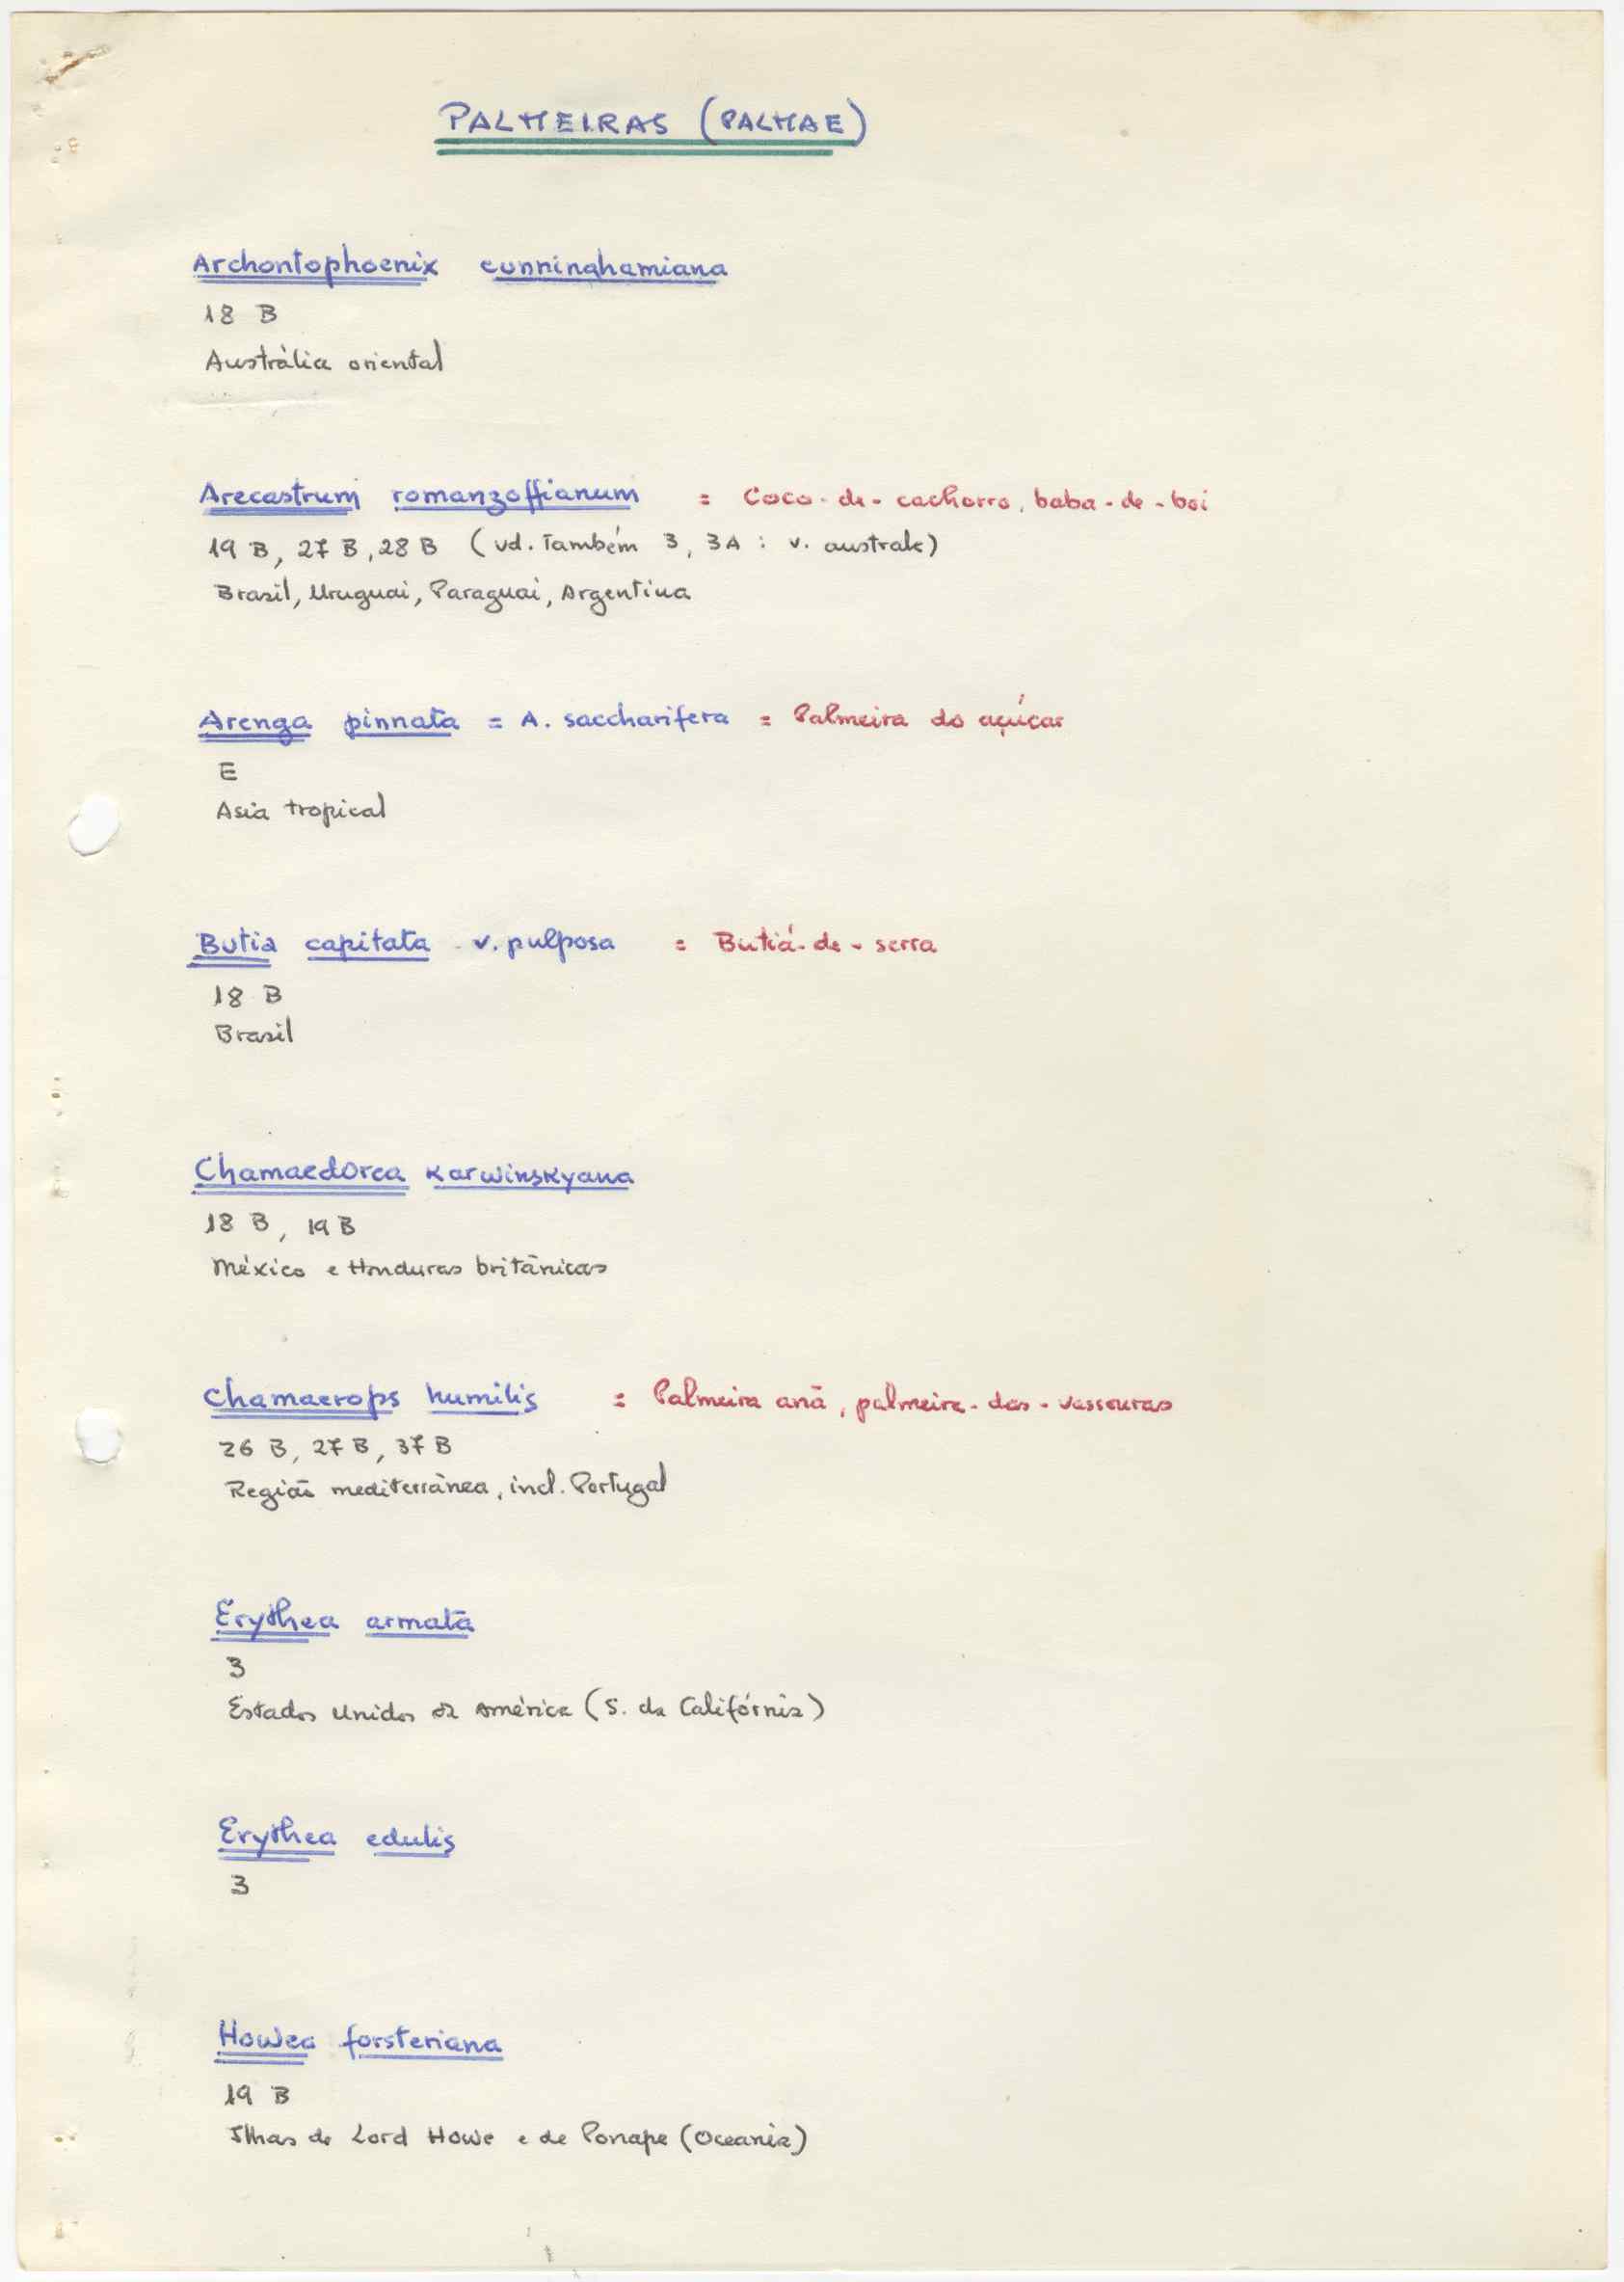 PALMEIRAS (PALMAE)
Archontophoenix cunninghamiana
18 B
Austrália oriental
Arecastrum romanzoffianum = Coco-de-cachorro, baba-de-boi
19 B, 27 B, 28 B (vd. também 3, 3A : v. australe)
Brasil, Uruguai, Paraguai, Argentina
Arenga pinnata = A. saccharifera = Palmeira do açúcar
E
Asia tropical
Butia capitata v. pulposa = Butiá-de-serra
18 B
Brasil
Chamaedorea Karwinskyana
18 B, 19 B
México e Honduras britânicas
Chamaerops humilis = Palmeira anã, palmeira-das-vassouras
26 B, 27 B, 37 B
Região mediterrânea, incl. Portugal
Erythea armata
3
Estados Unidos da América (S. da Califórnia)
Erythea edulis
3
Howea forsteriana
19 B
Ilhas de Lord Howe e de Ponape (Oceania)